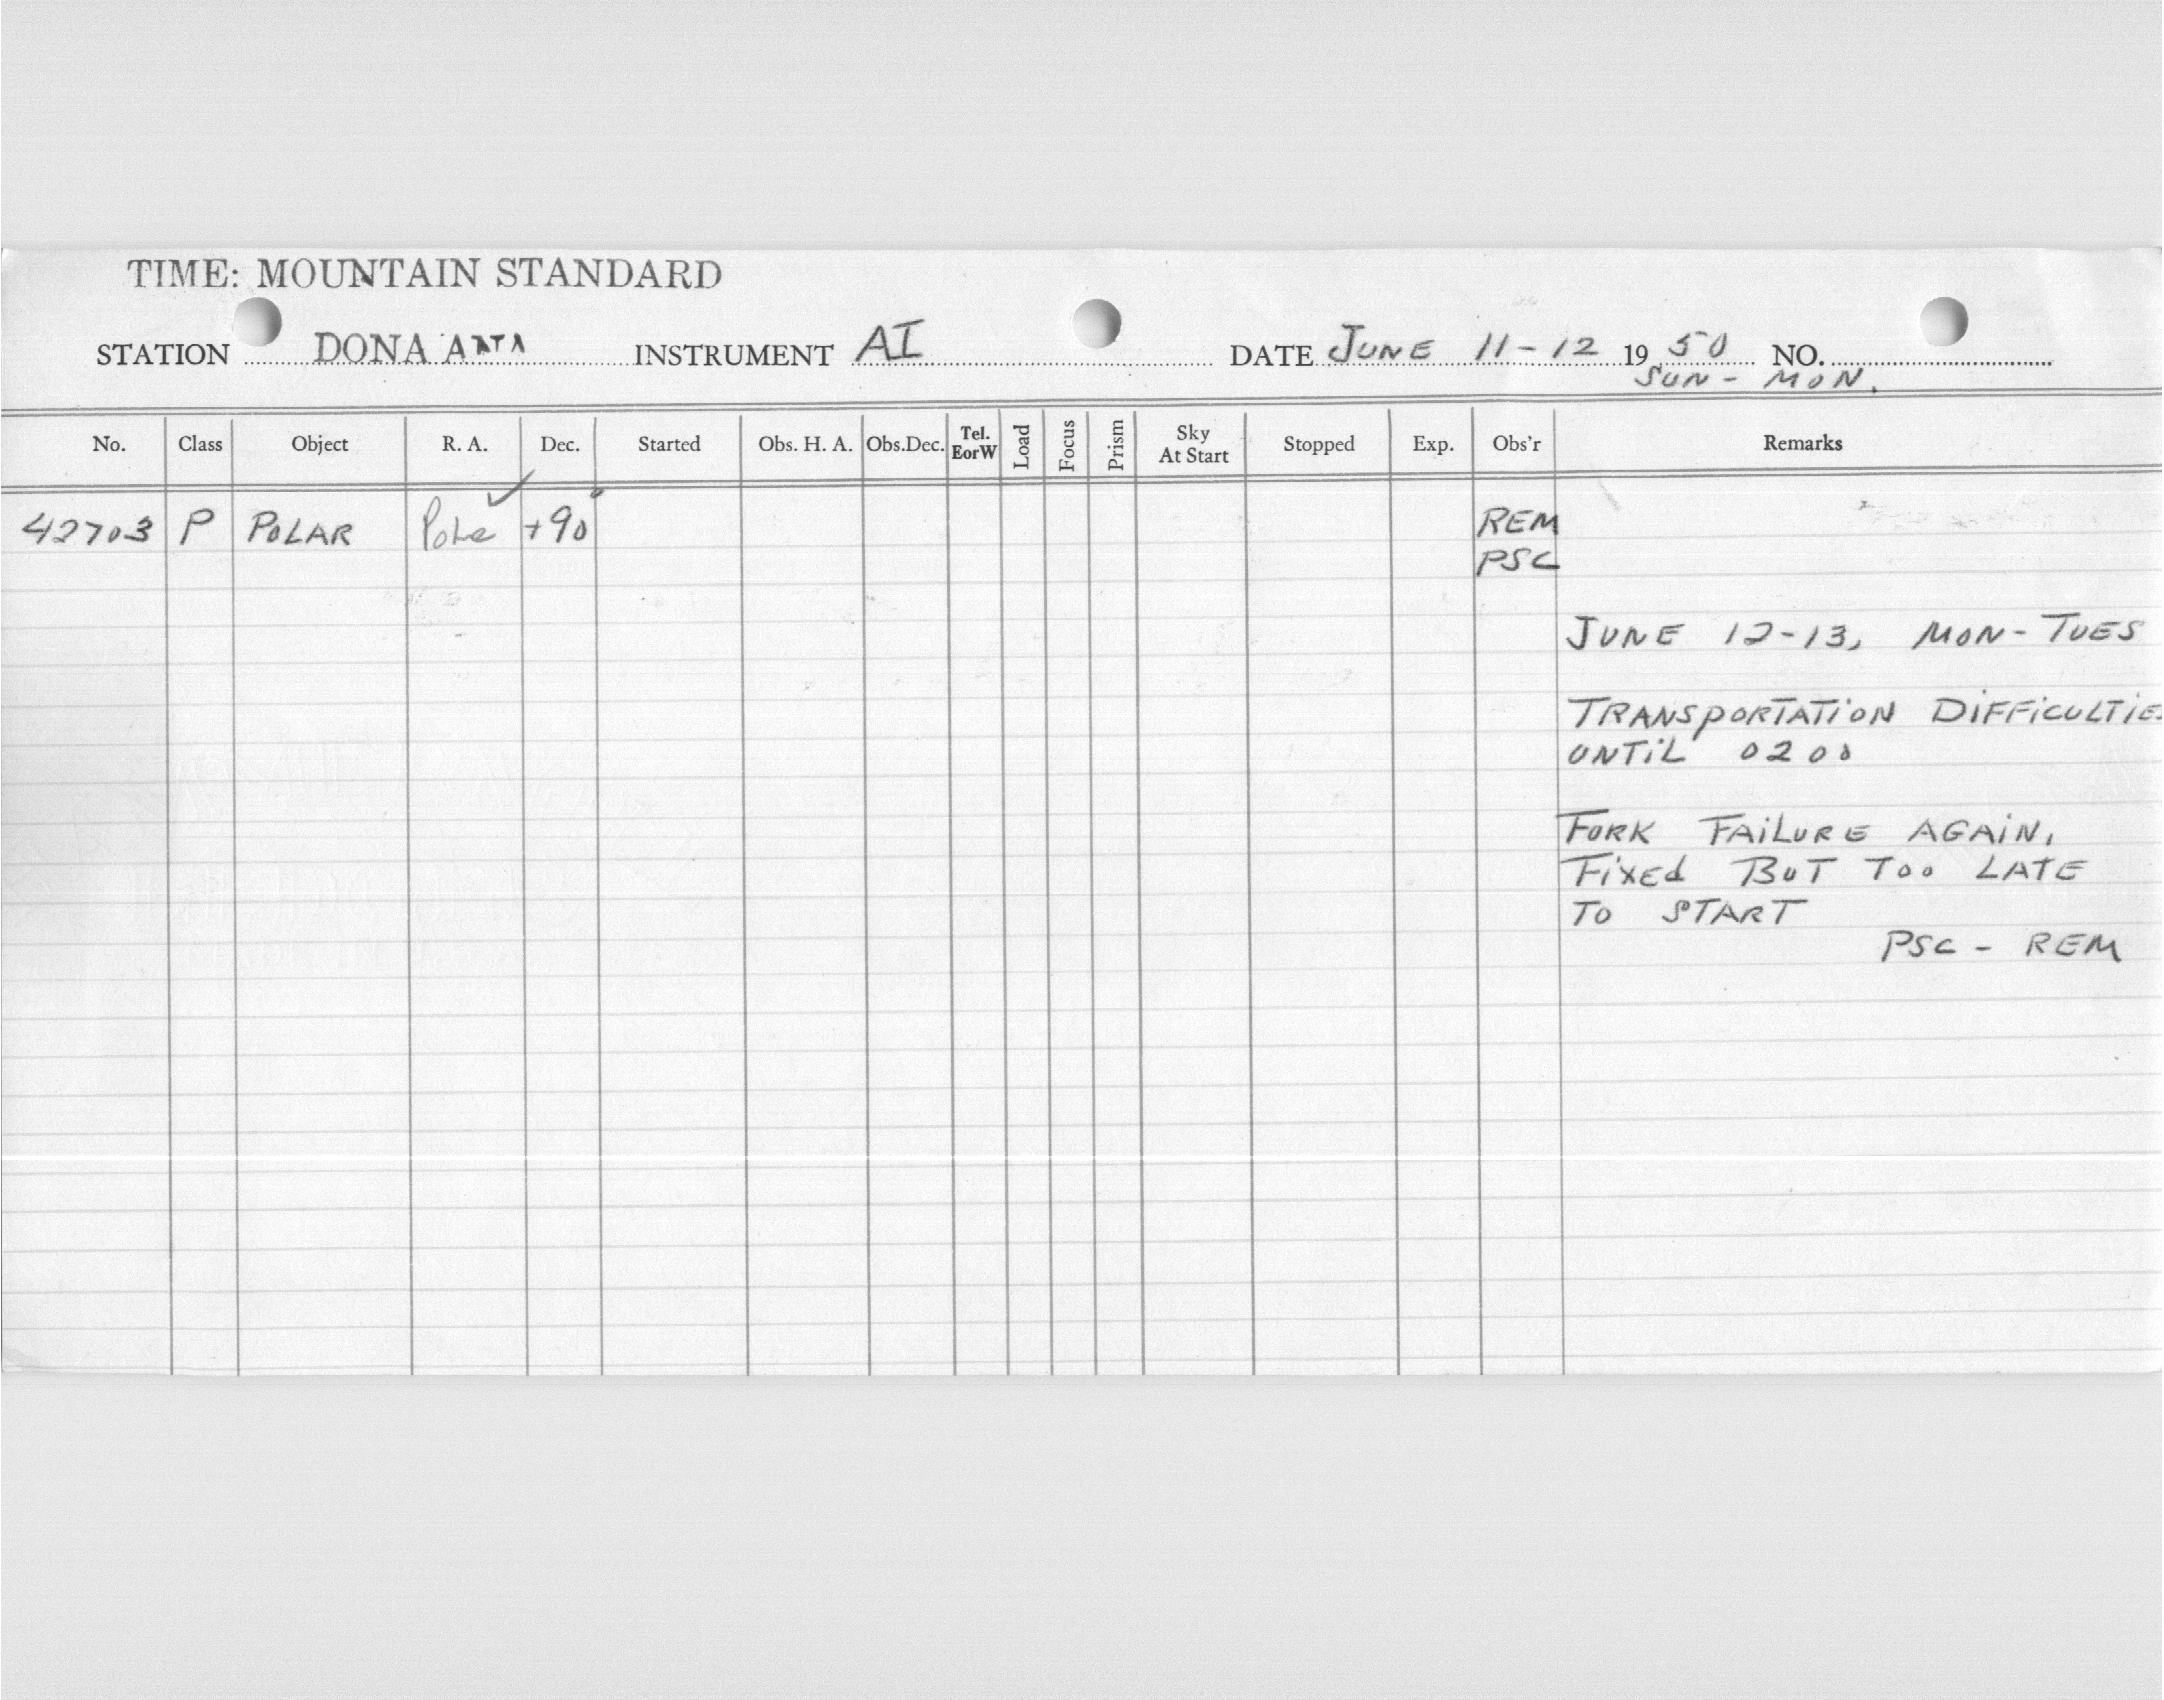 TIME: MOUNTAIN STANDARD
STATION DONA ANA INSTRUMENT AI DATE JUNE 11-12 1950 NO.
SUN- MON.
No. Class Object R. A. Dec. Started Obs. H. A. Obs.Dec. Tel. EorW Load Focus Prism Sky At Start Stopped Exp. Obs'r Remarks
42703 P POLAR Pole ✓ +90° REM
PSC
JUNE 12-13, MON-TUES
TRANSPORTATION DIFFICULTIES
UNTIL 0200
FORK FAILURE AGAIN.
FIXEd BUT TOO LATE
TO START
PSC - REM